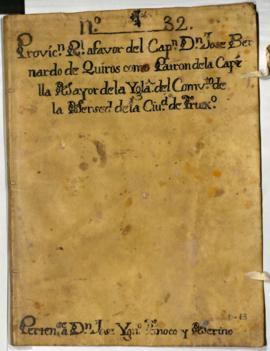 Nº 32.
Provicⁿ Rˡ afavor del Capⁿ Dⁿ Jose Ber
nardo de Quiros como Patron de la Capi
lla Mayor de la Yglª del Convᵗº de
la Mersed de la Ciuᵈ de Truxº
Perten. á Dⁿ Jose Ygnº y Merino